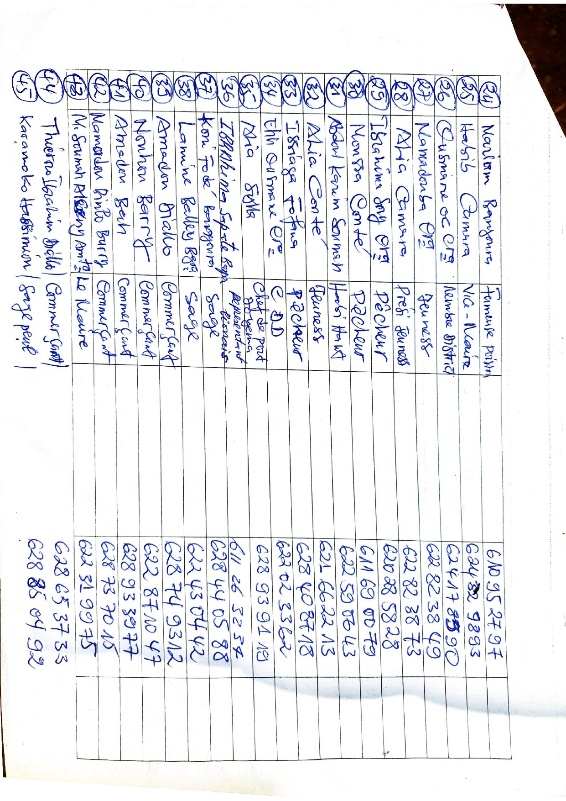 24 Mariam Bangoura Fumeuse poisson 610 95 27 97
25 Habib Camara Vic-Maire 624 82 98 93
26 Ousmane OC Cra Membre District 624 17 83 90
27 Mamadouba Cra Jeuness 622 82 38 49
28 Alia Camara Prest Jeuness 622 82 38 73
29 Ibrahima Sory Cra Pêcheur 620 88 58 28
30 Moussa Conté Pêcheur 611 69 00 79
31 Abdoul Karim Soumah 622 59 06 43
32 Alia Conté Jeuness 621 66 22 13
33 Issiaga Fofana pêcheur 628 40 87 18
34 Elh Ousmane Cra CDD 622 02 33 62
35 Alia Sylla Chef de port 628 93 91 19
36 Ibrahima 611 26 32 34
37 Kon Fodé Bangoura Sage 628 44 05 88
38 Lamine Sage 622 43 04 42
39 Amadou Diallo Commerçant 628 74 93 12
40 Nouhou Barry Commerçant 622 87 10 47
41 Amadou Bah Commerçant 628 93 39 77
42 Mamadou Barry Commerçant 628 73 70 15
43 M. Soumah Le Maire 622 31 99 75
44 Thierno Ibrahim Diallo Commerçant 628 65 37 33
45 Karamoko 628 85 04 92